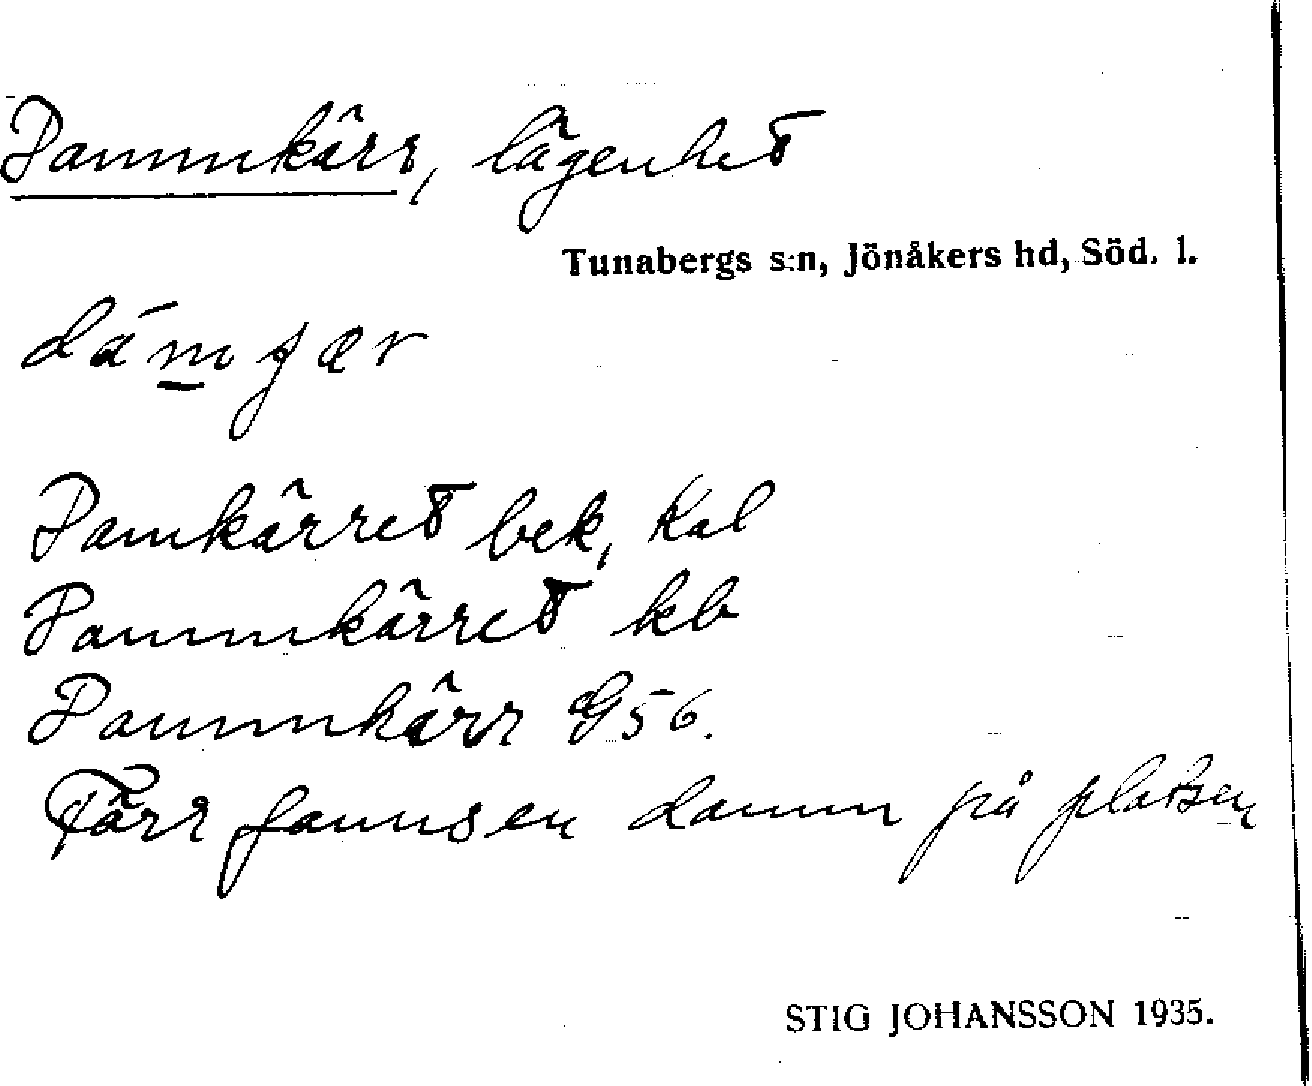 Dammkärr, lägenhet
Tunabergs s:n, Jönåkers hd, Söd. l.
dámɟær
Damkärret bek, Kal
Dammkärret kb
Dammkärr G56.
Förr funnsen damm på platsen
STIG JOHANSSON 1935.